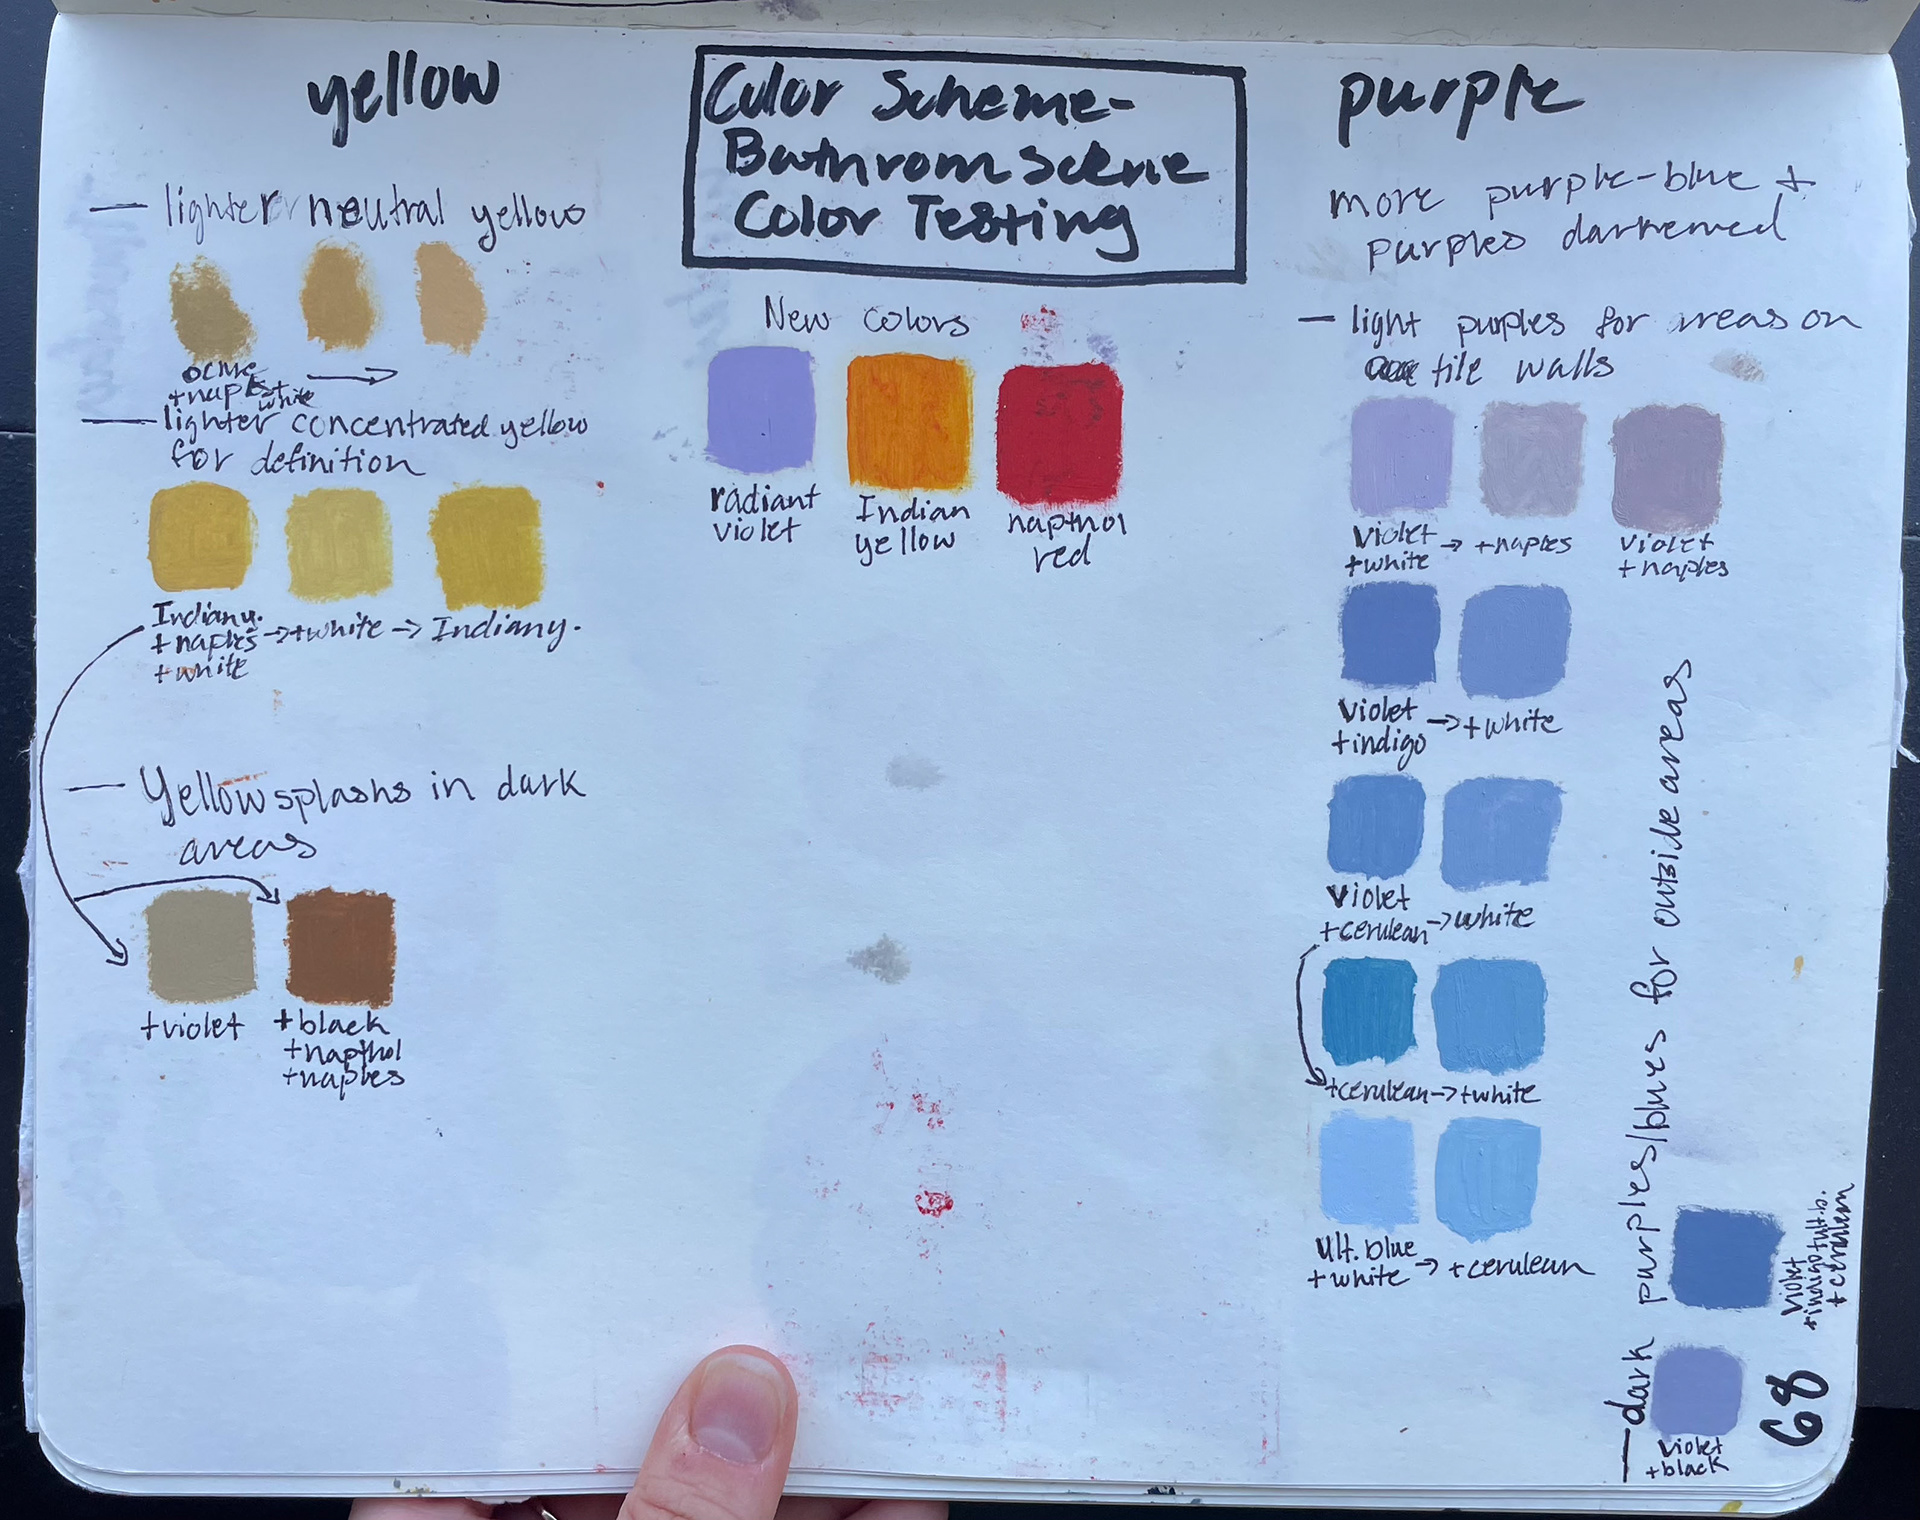 yellow
— lighter neutral yellow
ochre
+naples+
white
— lighter concentrated yellow
for definition
Indian y.
+naples →+white → Indian y.
+white
— Yellow splashs in dark
areas
+violet
+black
+napthol
+naples
Color Scheme-
Bathroom Scene
Color Testing
New Colors
radiant
violet
Indian
yellow
napthol
red
purple
more purple-blue +
purples darkened
— light purples for areas on
tile walls
Violet
+white → +naples
violet
+naples
Violet
+indigo → +white
Violet
+cerulean → white
+cerulean → +white
Ult. blue
+white → +cerulean
— dark purples/blues for outside areas
violet
+indigo+ult.b.
+cerulean
violet
+black
68